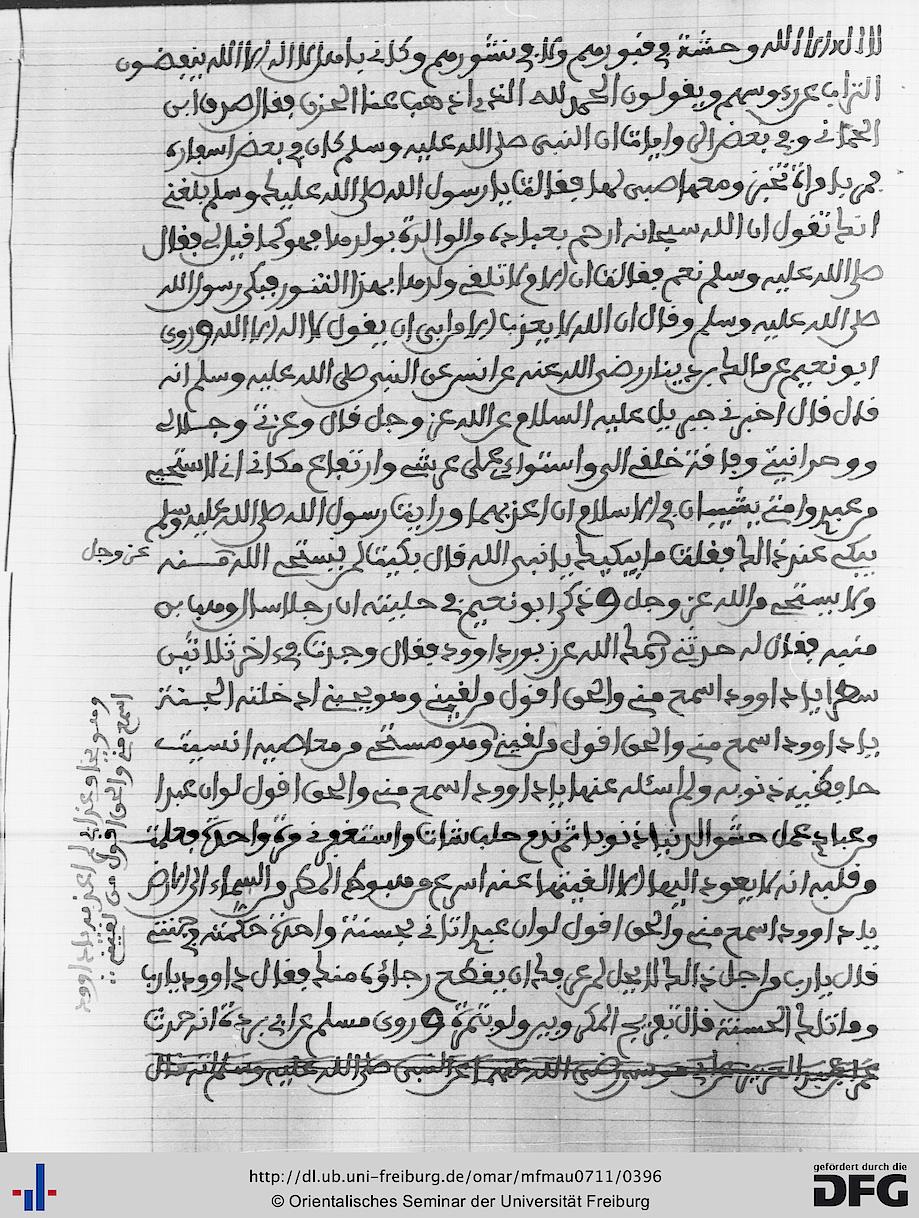 لا اله الا الله وحشة في قبورهم ولا في نشورهم وكاني باهل لا اله الا الله ينفضون
التراب عن رءوسهم ويقولون الحمد لله الذي اذهب عنا الحزن فقال
وفي بعض ان النبي صلى الله عليه وسلم كان في بعض اسفاره
فمر بامراة تخبز ومعها صبي لها فقالت يا رسول الله صلى الله عليه وسلم بلغني
انك تقول ان الله سبحانه ارحم بعباده من الوالدة بولدها فهو كما قيل لي فقال
صلى الله عليه وسلم نعم فقالت ان الام لا تلقي ولدها بهذا التنور فبكى رسول الله
صلى الله عليه وسلم وقال ان الله لا يعذب الا من ابى ان يقول لا اله الا الله وروى
ابو نعيم عن مالك بن دينار رضي الله عنه عن انس عن النبي صلى الله عليه وسلم انه
قال قال اخبرني جبريل عليه السلام عن الله عز وجل قال وعزتي وجلالي
ووحدانيتي وفاقة خلقي الي واستوائي على عرشي وارتفاع مكاني اني لاستحيي
من عبدي وامتي يشيبان في الاسلام ان اعذبهما ورايت رسول الله صلى الله عليه وسلم
يبكي عند ذالك فقلت ما يبكيك يا نبي الله قال بكيت لمن يستحي الله منه
عز وجل
ولا يستحي من الله عز وجل وذكر ابو نعيم في حليته ان رجلا سال وهب بن
منبه فقال له حدثني رحمك الله عن زبور داوود فقال وجدت في اخر ثلاثين
سطرا يا داوود اسمع مني والحق اقول من لقيني وهو يحبني ادخلته الجنة
يا داوود اسمع مني والحق اقول من لقيني وهو مستحي من معاصيه انسيت
حافظيه ذنوبه ولم اسئله عنها يا داوود اسمع مني والحق اقول لو ان عبدا
من عبادي عمل حشو الدنيا ذنوبا ثم ندم حلب شاة واستغفرني مرة واحدة فعلمت
من قلبه انه لا يعود اليها الا القيتها عنه اسرع من هبوط المطر من السماء الى الارض
يا داوود اسمع مني والحق اقول لو ان عبدا اتاني بحسنة واحدة حكمته في جنتي
قال يا رب من اجل ذالك لا يحل لمن عرفك ان يقطع رجاؤه منك فقال داوود يا رب
وما تلك الحسنة قال تفريج المكروب ولو بتمرة وروى مسلم عن ابي بردة انه حدث
رضي الله عنهم عن النبي صلى الله عليه وسلم انه قال
وهو يخاف عذابي لم اعذبه يا داوود
اسمع مني والحق اقول من لقيني
http://dl.ub.uni-freiburg.de/omar/mfmau0711/0396
© Orientalisches Seminar der Universität Freiburg
gefördert durch die
DFG